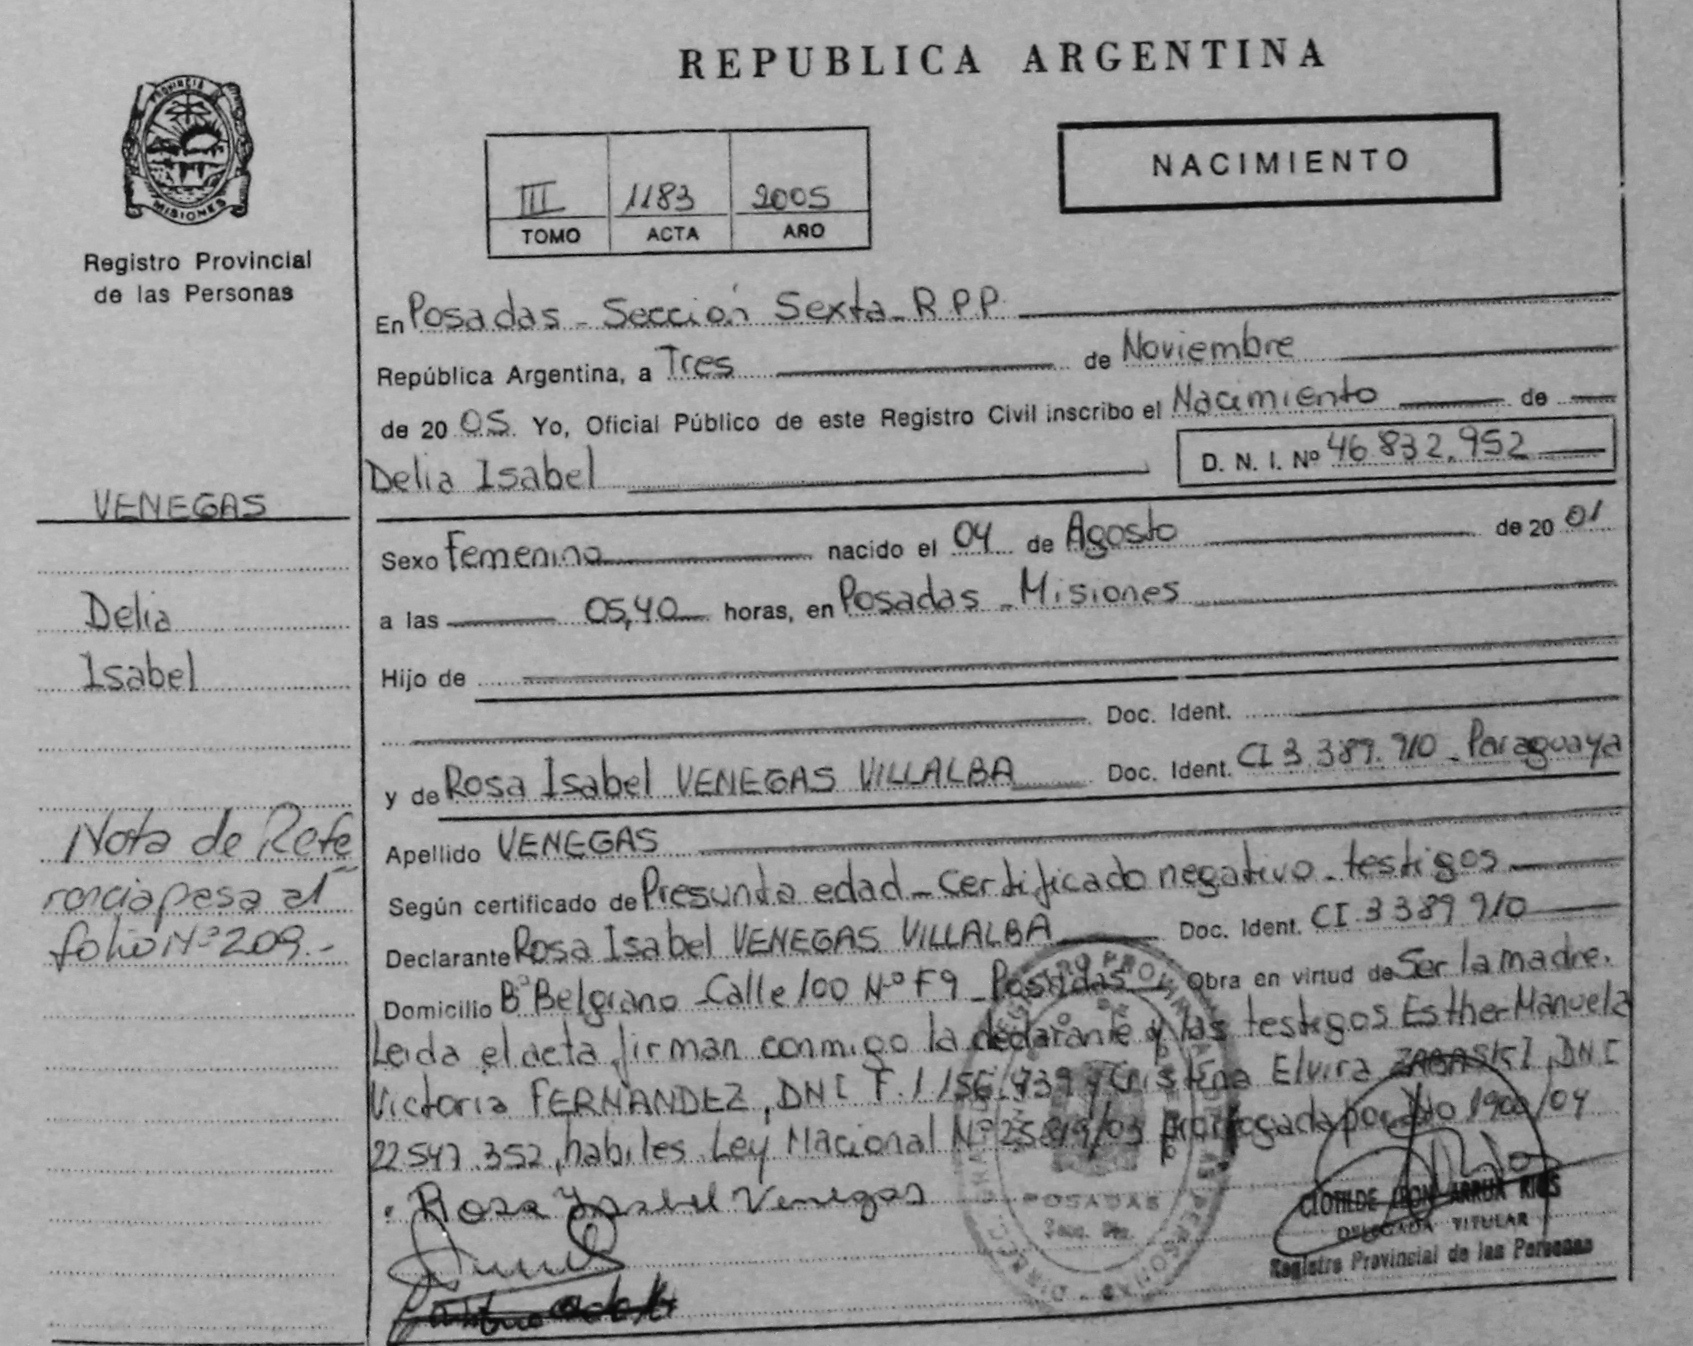 REPUBLICA ARGENTINA
PROVINCIA
MISIONES
Registro Provincial
de las Personas
NACIMIENTO
III 1183 2005
TOMO ACTA AÑO
En Posadas - Sección Sexta - R P P
República Argentina, a Tres de Noviembre
de 20 05. Yo, Oficial Público de este Registro Civil inscribo el Nacimiento de
Delia Isabel D. N. I. Nº 46 832.952
VENEGAS
Delia
Isabel
Sexo Femenino nacido el 04 de Agosto de 20 01
a las 05,40 horas, en Posadas - Misiones
Hijo de
Doc. Ident.
y de Rosa Isabel VENEGAS VILLALBA Doc. Ident. CI 3 389.910 - Paraguaya
Apellido VENEGAS
Según certificado de Presunta edad - Certificado negativo - testigos
Declarante Rosa Isabel VENEGAS VILLALBA Doc. Ident. CI 3 389 910
Domicilio Bº Belgrano - Calle 100 Nº F9 - Posadas - Obra en virtud de Ser la madre.
Leida el acta firman conmigo la declarante y las testigos Esther Manuela
Victoria FERNANDEZ, DNI F. 1 156.939 y Cristina Elvira DNI
22547.352, habiles Ley Nacional Nº 25819/03 prorrogada por 1900/04
Nota de Refe
rencia pasa al
folio Nº 209.-
Rosa Ysabel Venegas
POSADAS
CLOTILDE ARRUA RIOS
DELEGADA TITULAR
Registro Provincial de las Personas